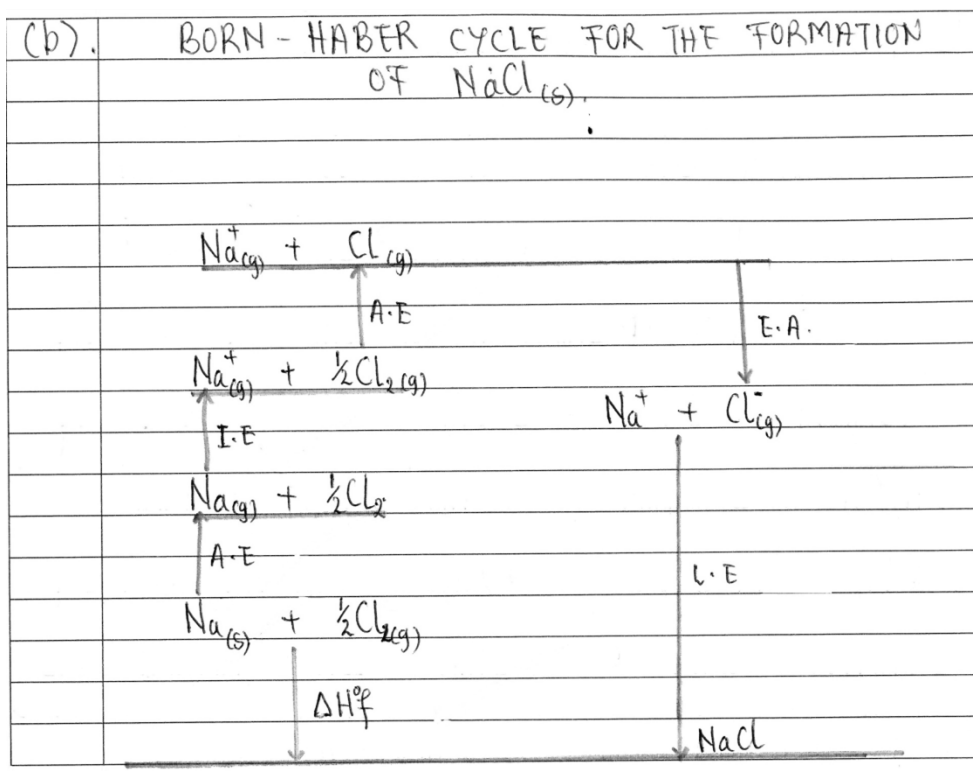 (b). BORN - HABER CYCLE FOR THE FORMATION
OF NaCl(s).
Na⁺(g) + Cl(g)
A.E
E.A.
Na⁺(g) + ½Cl₂(g)
Na⁺ + Cl⁻(g)
I.E
Na(g) + ½Cl₂
A.E
L.E
Na(s) + ½Cl₂(g)
ΔH°f
NaCl